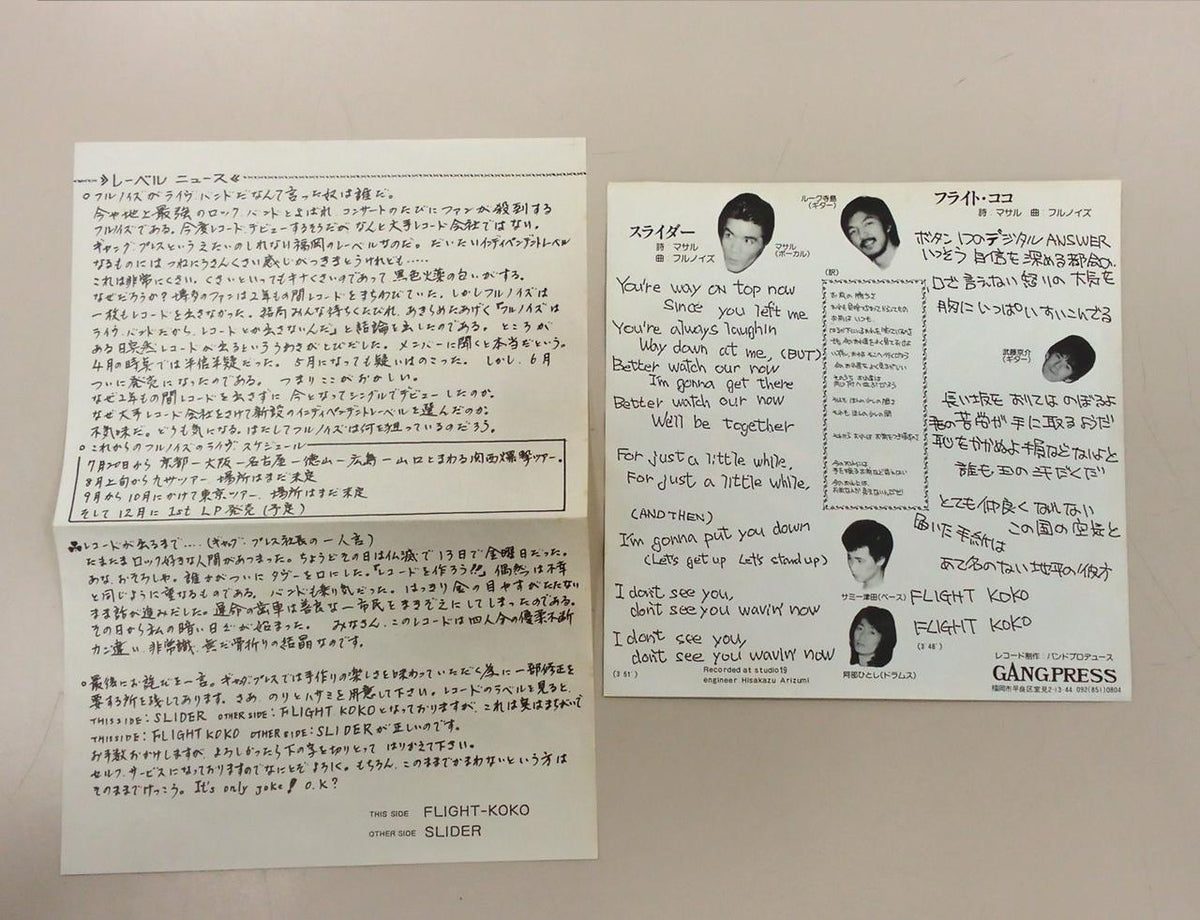 レーベル ニュース
○フルノイズがライヴバンドだなんて言った奴は誰だ。
今や地上最強のロックバンドとよばれ、コンサートのたびにファンが殺到する
フルノイズである。今度レコードデビューするそうだが、なんと大手レコード会社ではない。
ギャングプレスというえたいのしれない福岡のレーベルなのだ。だいたいインディペンデントレーベル
なるものにはつねにうさんくさい感じがつきまとうけれども……
これは非常にくさい。くさいといってもキナくさいのであって、黒色火薬の匂いがする。
なぜだろうか?博多のファンは2年もの間レコードをまちわびていた。しかしフルノイズは
一枚もレコードを出さなかった。結局みんな待ちくたびれ、あきらめたあげく『フルノイズは
ライヴバンドだから、レコードとか出さないんだ』と結論を出したのである。ところが
ある日突然レコードが出るといううわさがとびだした。メンバーに聞くと本当だという。
4月の時点では半信半疑だった。5月になっても疑いはのこった。しかし、6月
ついに発売になったのである。つまりここがおかしい。
なぜ2年もの間レコードを出さずに今となってシングルでデビューしたのか。
なぜ大手レコード会社をさけて新設のインディペンデントレーベルを選んだのか。
不気味だ。どうも気になる。はたしてフルノイズは何を狙っているのだろう。
○これからのフルノイズのライヴ スケジュール
7月20日から京都―大阪―名古屋―徳山―広島―山口とまわる関西爆撃ツアー。
8月上旬から九州ツアー 場所はまだ未定
9月から10月にかけて東京ツアー、場所はまだ未定
そして12月に1st LP発売(予定)
♣レコードが出るまで……(ギャングプレス社長の一人言)
たまたまロック好きな人間があつまった。ちょうどその日は仏滅で13日で金曜日だった。
あな、おそろしや。誰かがついにタヴーを口にした。『レコードを作ろう!!』偶然は不幸
と同じように重なるものである。バンドも乗り気だった。はっきり金の目やすがたたない
まま話が進みだした。運命の歯車は善良な一市民をまきぞえにしてしまったのである。
その日から私の暗い日々が始まった。みなさん、このレコードは四人分の優柔不断
カン違い、非常識、無だ骨折りの結晶なのです。
○最後にお詫びを一言。ギャングプレスでは手作りの楽しさを味わっていただく為に一部修正を
要する所を残してあります。さあ、のりとハサミを用意して下さい。レコードのラベルを見ると、
THIS SIDE: SLIDER OTHER SIDE: FLIGHT KOKOとなっておりますが、これは実はまちがいで
THIS SIDE: FLIGHT KOKO OTHER SIDE: SLIDERが正しいのです。
お手数おかけしますが、よろしかったら下の字を切りとって はりかえて下さい。
セルフ・サービスになっておりますのでなにとぞよろしく。もちろん、このままでかまわないという方は
そのままでけっこう。It's only joke! O.K?
THIS SIDE FLIGHT-KOKO
OTHER SIDE SLIDER
スライダー
詩 マサル
曲 フルノイズ
マサル
(ボーカル)
ルーク寺島
(ギター)
You're way on top now
Since you left me
You're always laughin
Way down at me, (BUT)
Better watch our now
I'm gonna get there
Better watch our now
We'll be together
For just a little while,
For just a little while,
(AND THEN)
I'm gonna put you down
(Let's get up Let's stand up)
I don't see you,
don't see you wavin' now
I don't see you,
don't see you wavin' now
(3 51)
Recorded at studio19
engineer Hisakazu Arizumi
(訳)
サミー津田(ベース)
阿部ひとし(ドラムス)
フライト・ココ
詩 マサル 曲 フルノイズ
ボタン1つのデジタル ANSWER
いっそう自信を深める都会が
口さえ言えない怒りの大気を
胸にいっぱいすいこんでる
武藤京介
(ギター)
長い坂をおりてはのぼるよ
君の苦労が手に取るようだ
恥をかかめよ損などないよと
誰も玉の汗だくだ
とても仲良くなれない
この国の空気と
届いた手紙は
あて名のない地平の彼方
FLIGHT KOKO
FLIGHT KOKO
(3 48)
レコード制作:バンドプロデュース
GANGPRESS
福岡市早良区室見2-13-44 092(851)0804